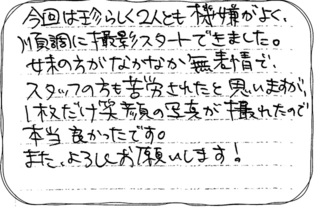 今回は珍らしく2人とも機嫌がよく、
順調に撮影スタートできました。
妹の方がなかなか無表情で、
スタッフの方も苦労されたと思いますが、
1枚だけ笑顔の写真が撮れたので
本当良かったです。
また、よろしくお願いします!